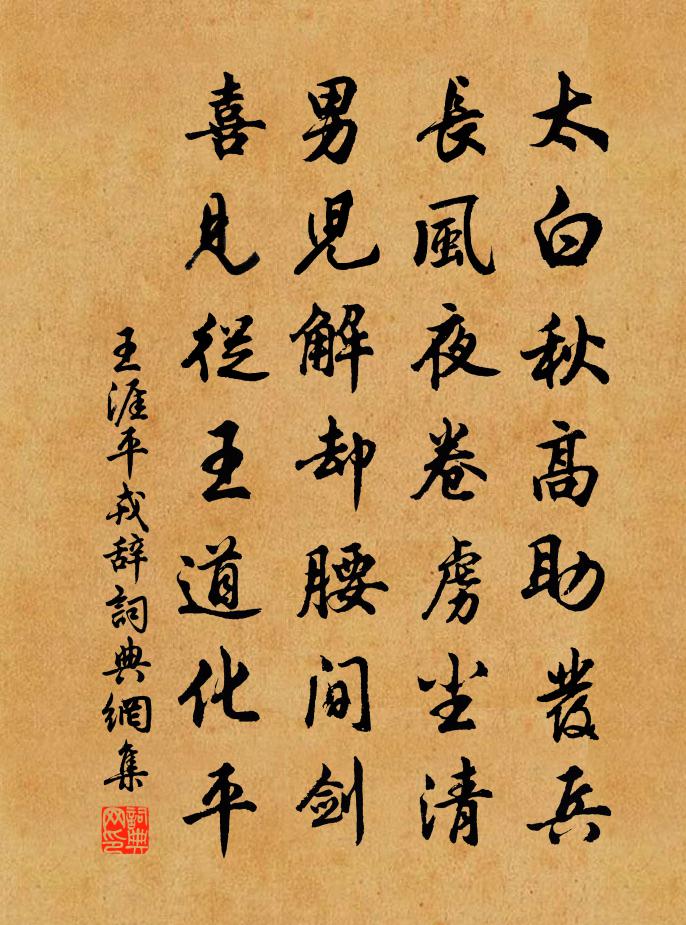 太白秋高助發兵
長風夜卷虜塵清
男兒解却腰間劍
喜見從王道化平
王涯平戎辞詞典網集
詞典网印